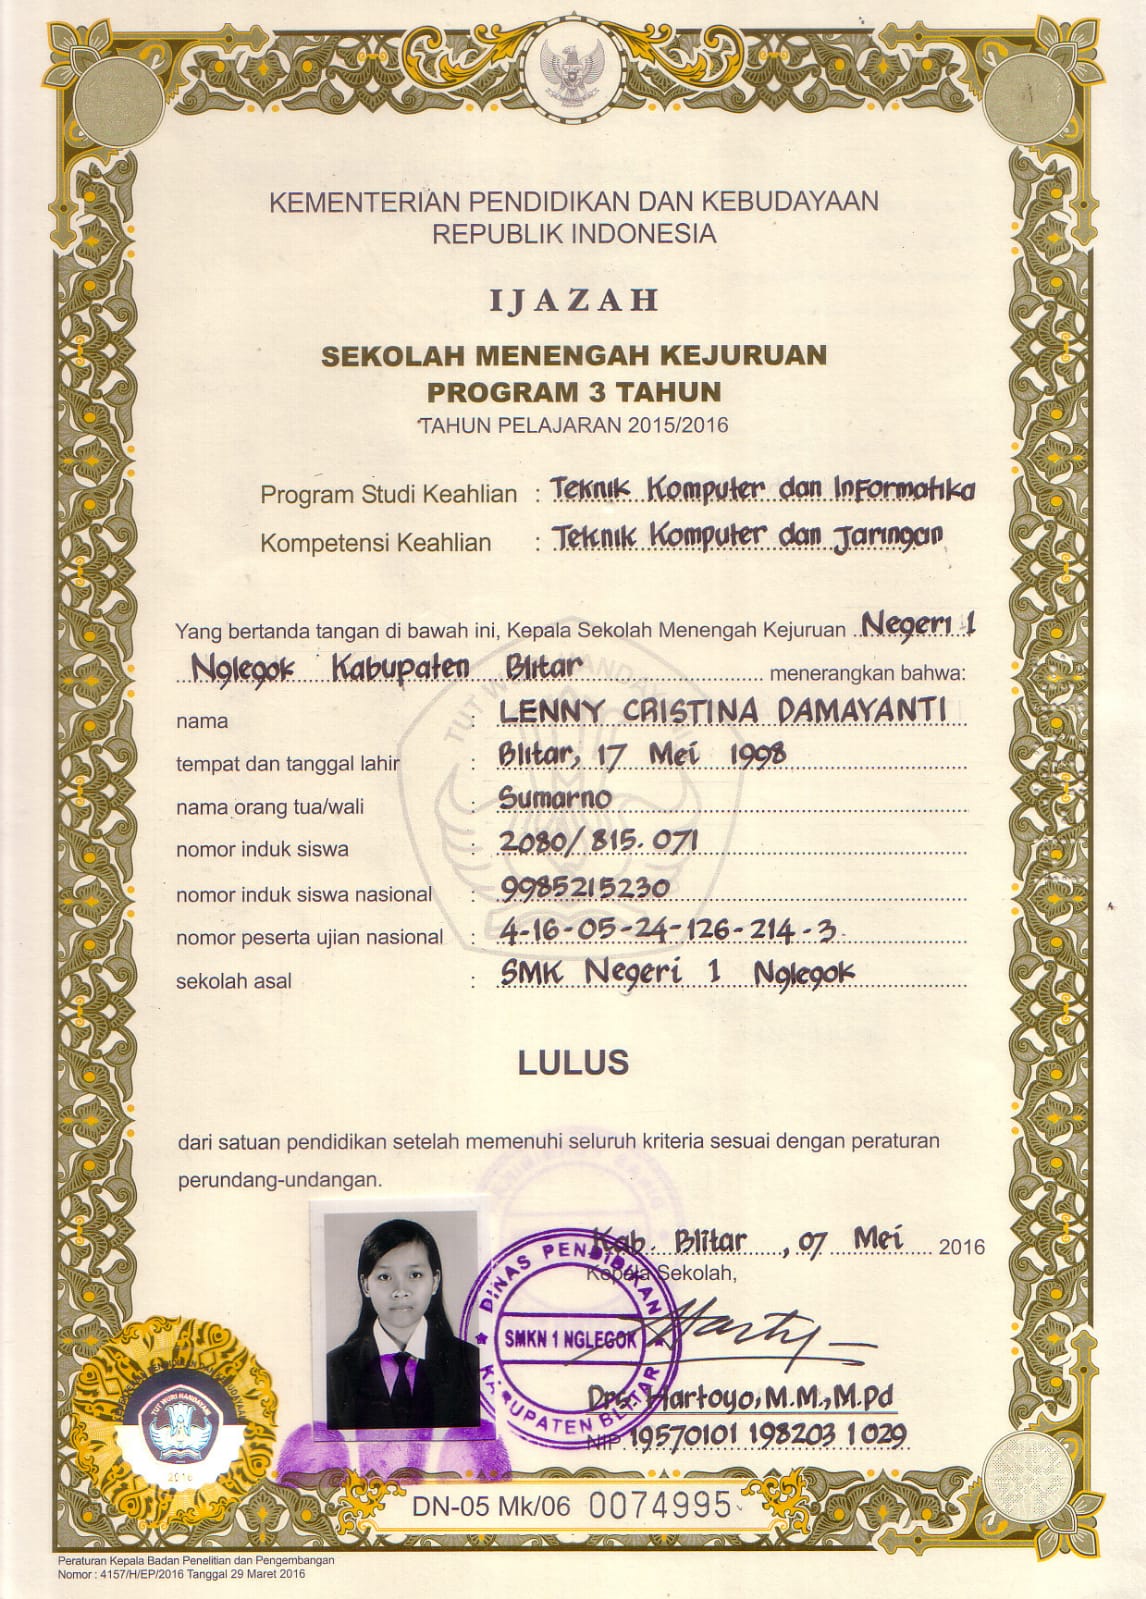 KEMENTERIAN PENDIDIKAN DAN KEBUDAYAAN
REPUBLIK INDONESIA
IJAZAH
SEKOLAH MENENGAH KEJURUAN
PROGRAM 3 TAHUN
TAHUN PELAJARAN 2015/2016
Program Studi Keahlian : Teknik Komputer dan Informatika
Kompetensi Keahlian : Teknik Komputer dan Jaringan
Yang bertanda tangan di bawah ini, Kepala Sekolah Menengah Kejuruan Negeri 1
Nglegok Kabupaten Blitar menerangkan bahwa:
nama : LENNY CRISTINA DAMAYANTI
tempat dan tanggal lahir : Blitar, 17 Mei 1998
nama orang tua/wali : Sumarno
nomor induk siswa : 2080/815.071
nomor induk siswa nasional : 9985215230
nomor peserta ujian nasional : 4-16-05-24-126-214-3
sekolah asal : SMK Negeri 1 Nglegok
TUT WURI HANDAYANI
LULUS
dari satuan pendidikan setelah memenuhi seluruh kriteria sesuai dengan peraturan
perundang-undangan.
Kab. Blitar, 07 Mei 2016
Kepala Sekolah,
DINAS PENDIDIKAN
SMKN 1 NGLEGOK
KABUPATEN BLITAR
Drs. Hartoyo, M.M., M.Pd
NIP 19570101 198203 1 029
TUT WURI HANDAYANI
2016
DN-05 Mk/06 0074995
Peraturan Kepala Badan Penelitian dan Pengembangan
Nomor : 4157/H/EP/2016 Tanggal 29 Maret 2016